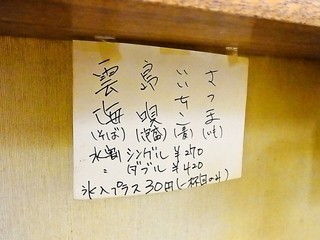 雲海
島唄
いいちこ
さつま
(そば) (泡盛) (麦) (いも)
水割 シングル ¥270
〃 ダブル ¥420
氷入プラス30円(一杯目のみ)